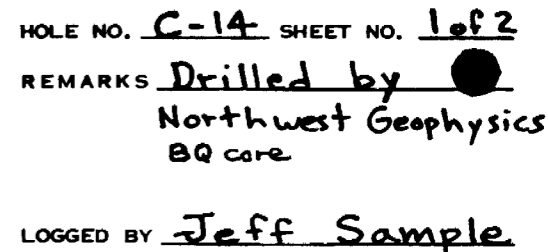 HOLE NO. C-14 SHEET NO. 1 of 2
REMARKS Drilled by
Northwest Geophysics
BQ core
LOGGED BY Jeff Sample